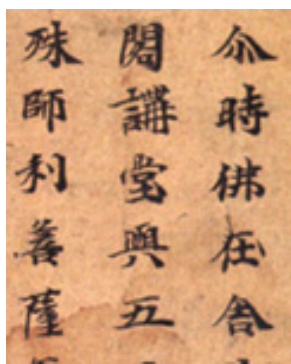 尒時佛在舍
閣講堂與五
殊師利菩薩